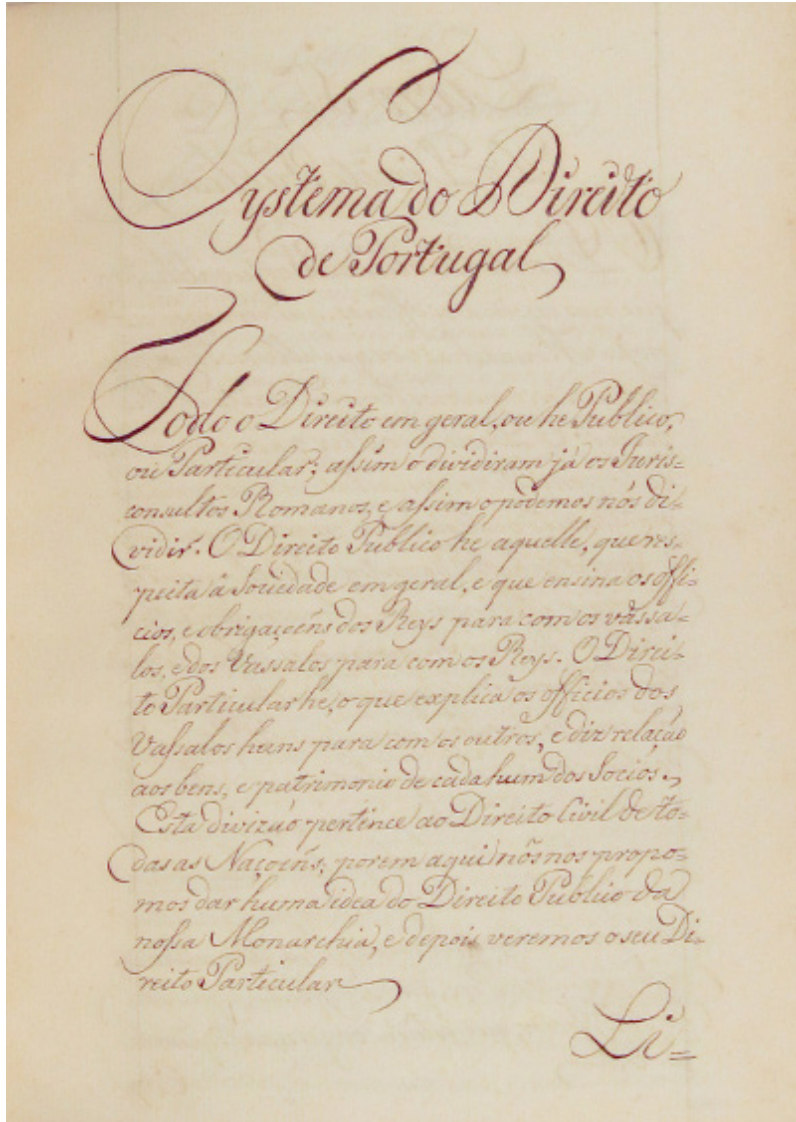 Systema do Direito
de Portugal
Todo o Direito em geral, ou he Publico,
ou Particular; assim o dividiram já os Juris=
consultos Romanos, e assim o podemos nós di=
vidir. O Direito Publico he aquelle, que res=
peita á Sociedade em geral, e que ensina os offi=
cios, e obrigaçoens dos Reys para com os vassa=
los, e dos Vassalos para com os Reys. O Direi=
to Particular he, o que explica os officios dos
Vassalos huns para com os outros, e diz relação
aos bens, e patrimonio de cada hum dos Socios.
Esta divizão pertence ao Direito Civil de to=
das as Naçoens; porem aqui nós nos propo=
mos dar huma idea do Direito Publico da
nossa Monarchia, e depois veremos o seu Di=
reito Particular
Li=